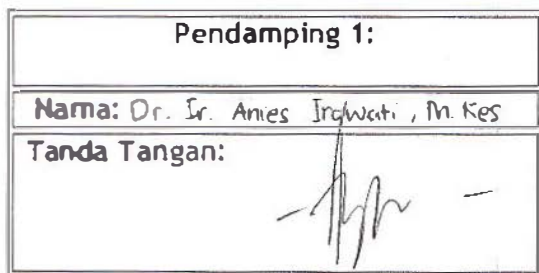 Pendamping 1:
Nama: Dr. Ir. Anies Irawati, M. Kes
Tanda Tangan: